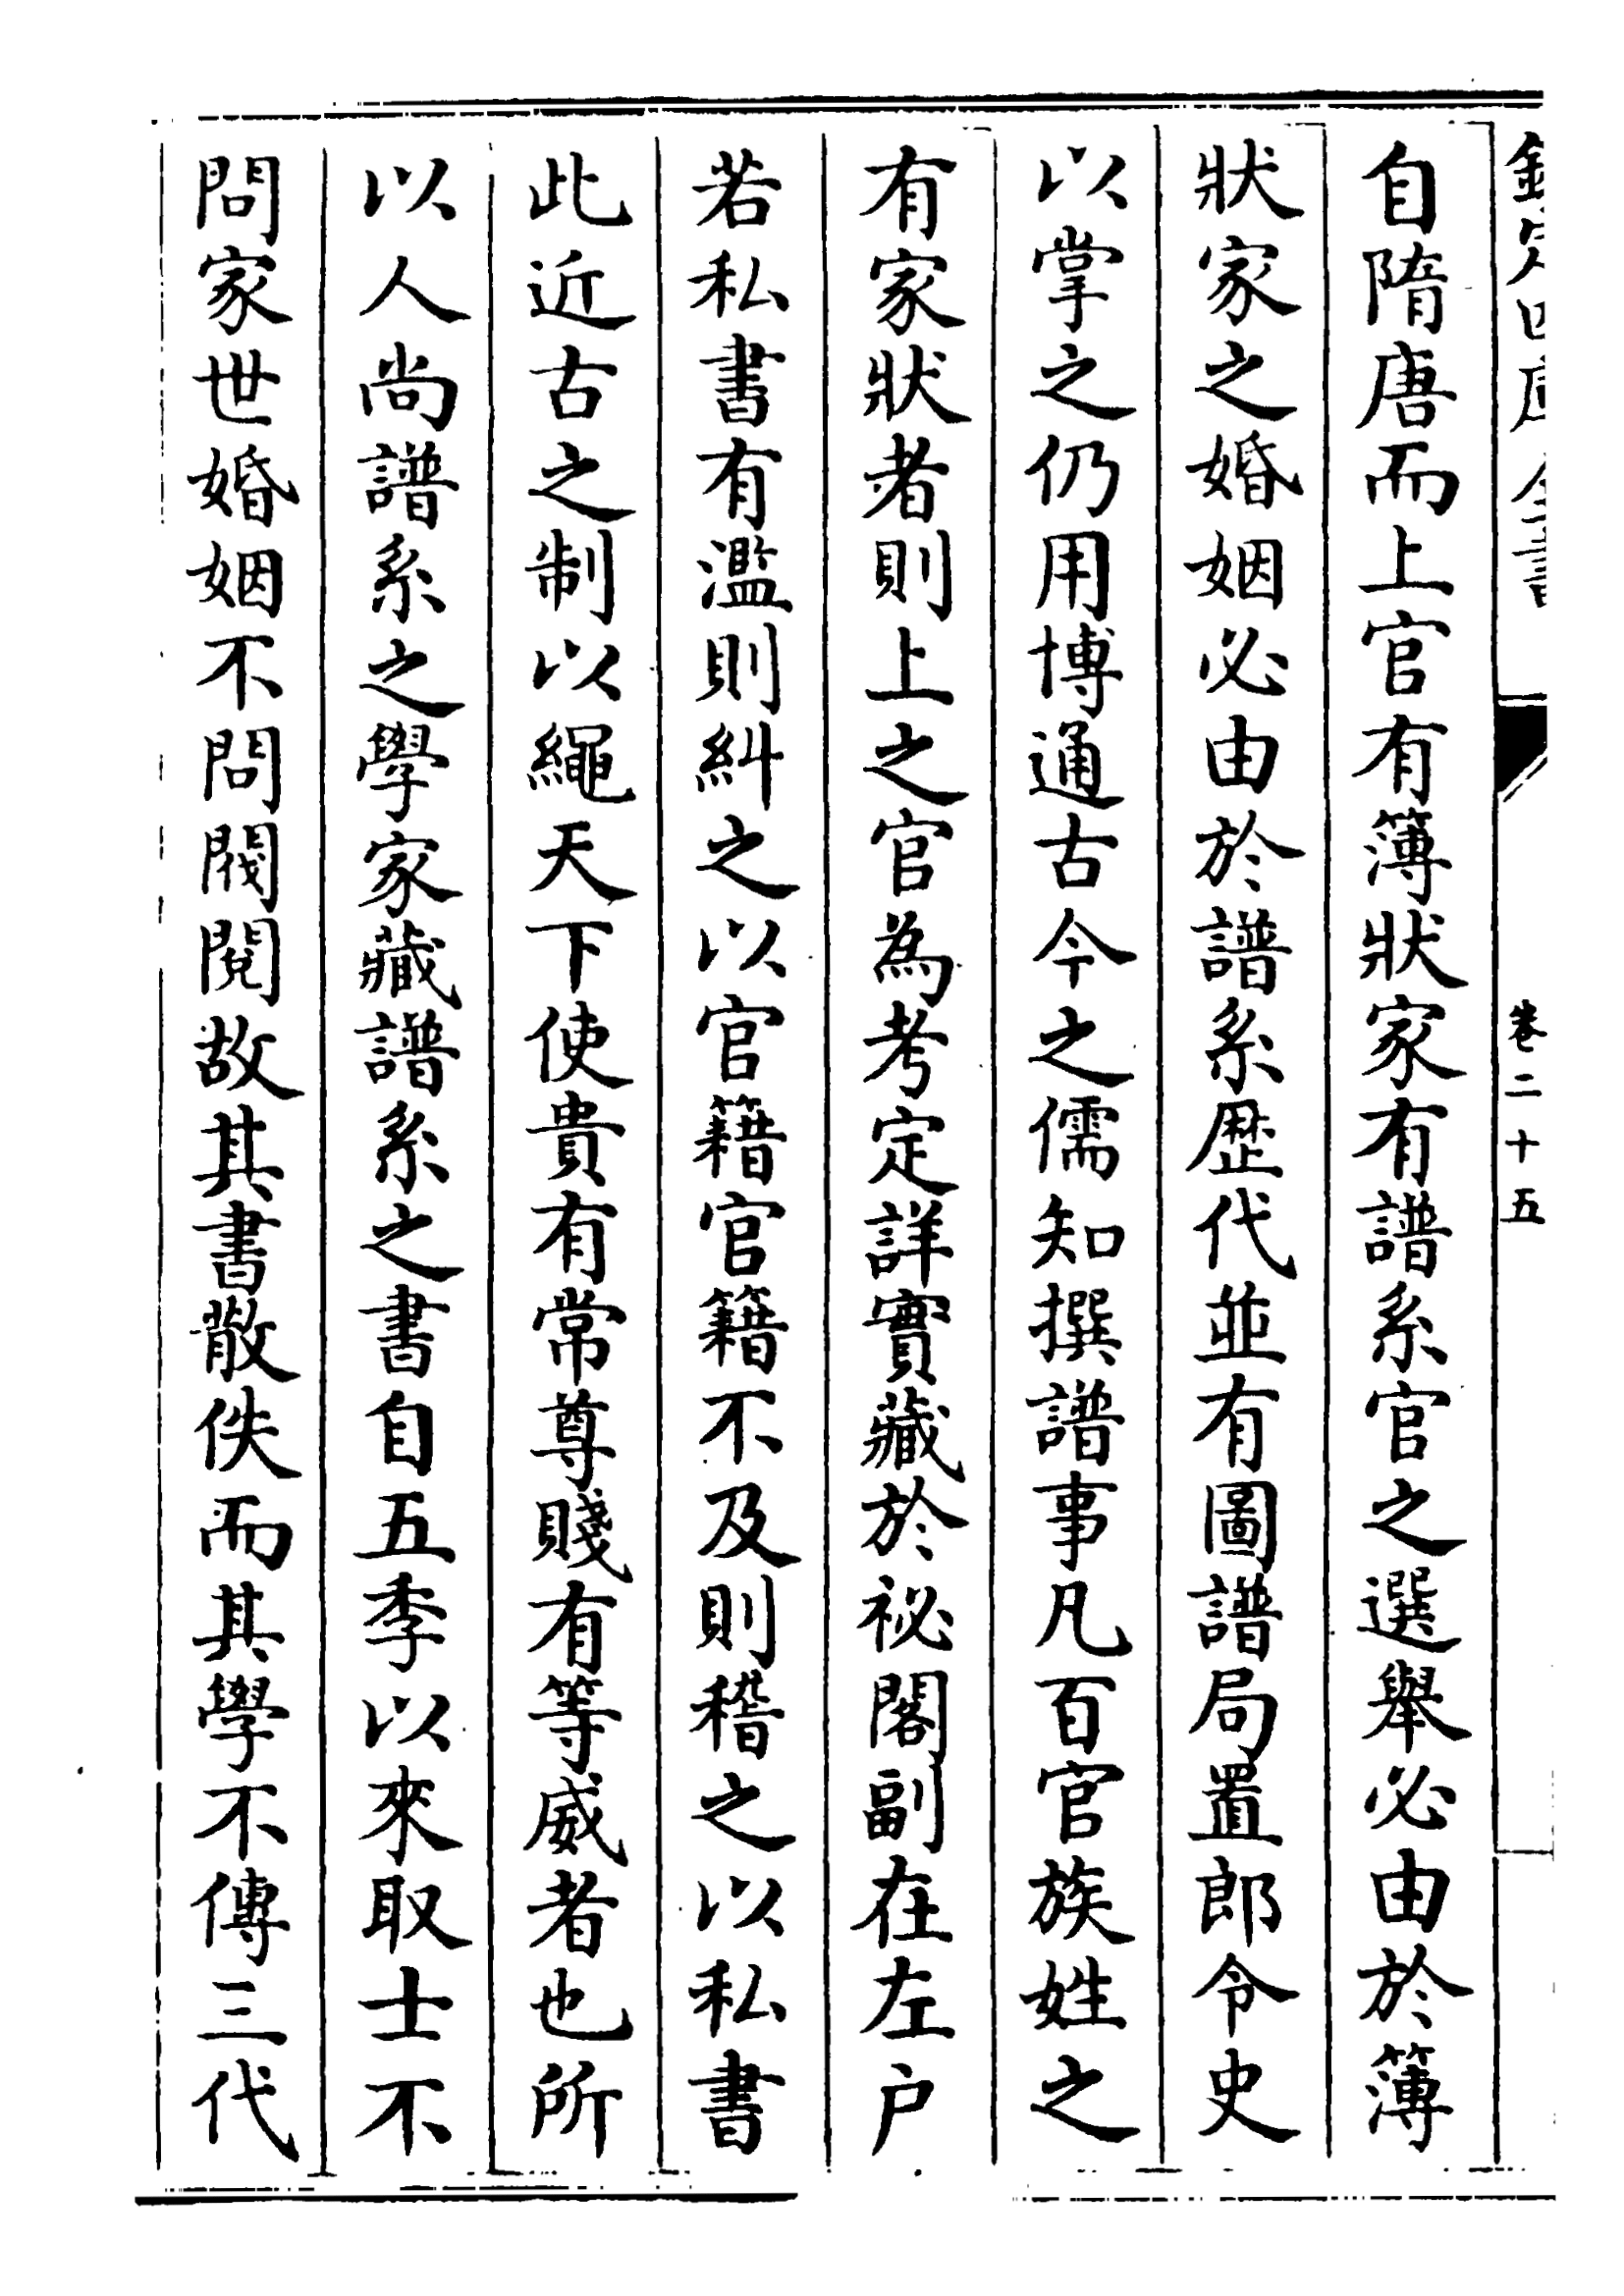 欽定四庫全書
卷二十五
自隋唐而上官有簿狀家有譜系官之選舉必由於簿
狀家之婚姻必由於譜系歷代並有圖譜局置郎令史
以掌之仍用博通古今之儒知撰譜事凡百官族姓之
有家狀者則上之官為考定詳實藏於祕閣副在左户
若私書有濫則糾之以官籍官籍不及則稽之以私書
此近古之制以繩天下使貴有常尊賤有等威者也所
以人尚譜系之學家藏譜系之書自五季以來取士不
問家世婚姻不問閥閱故其書散佚而其學不傳三代